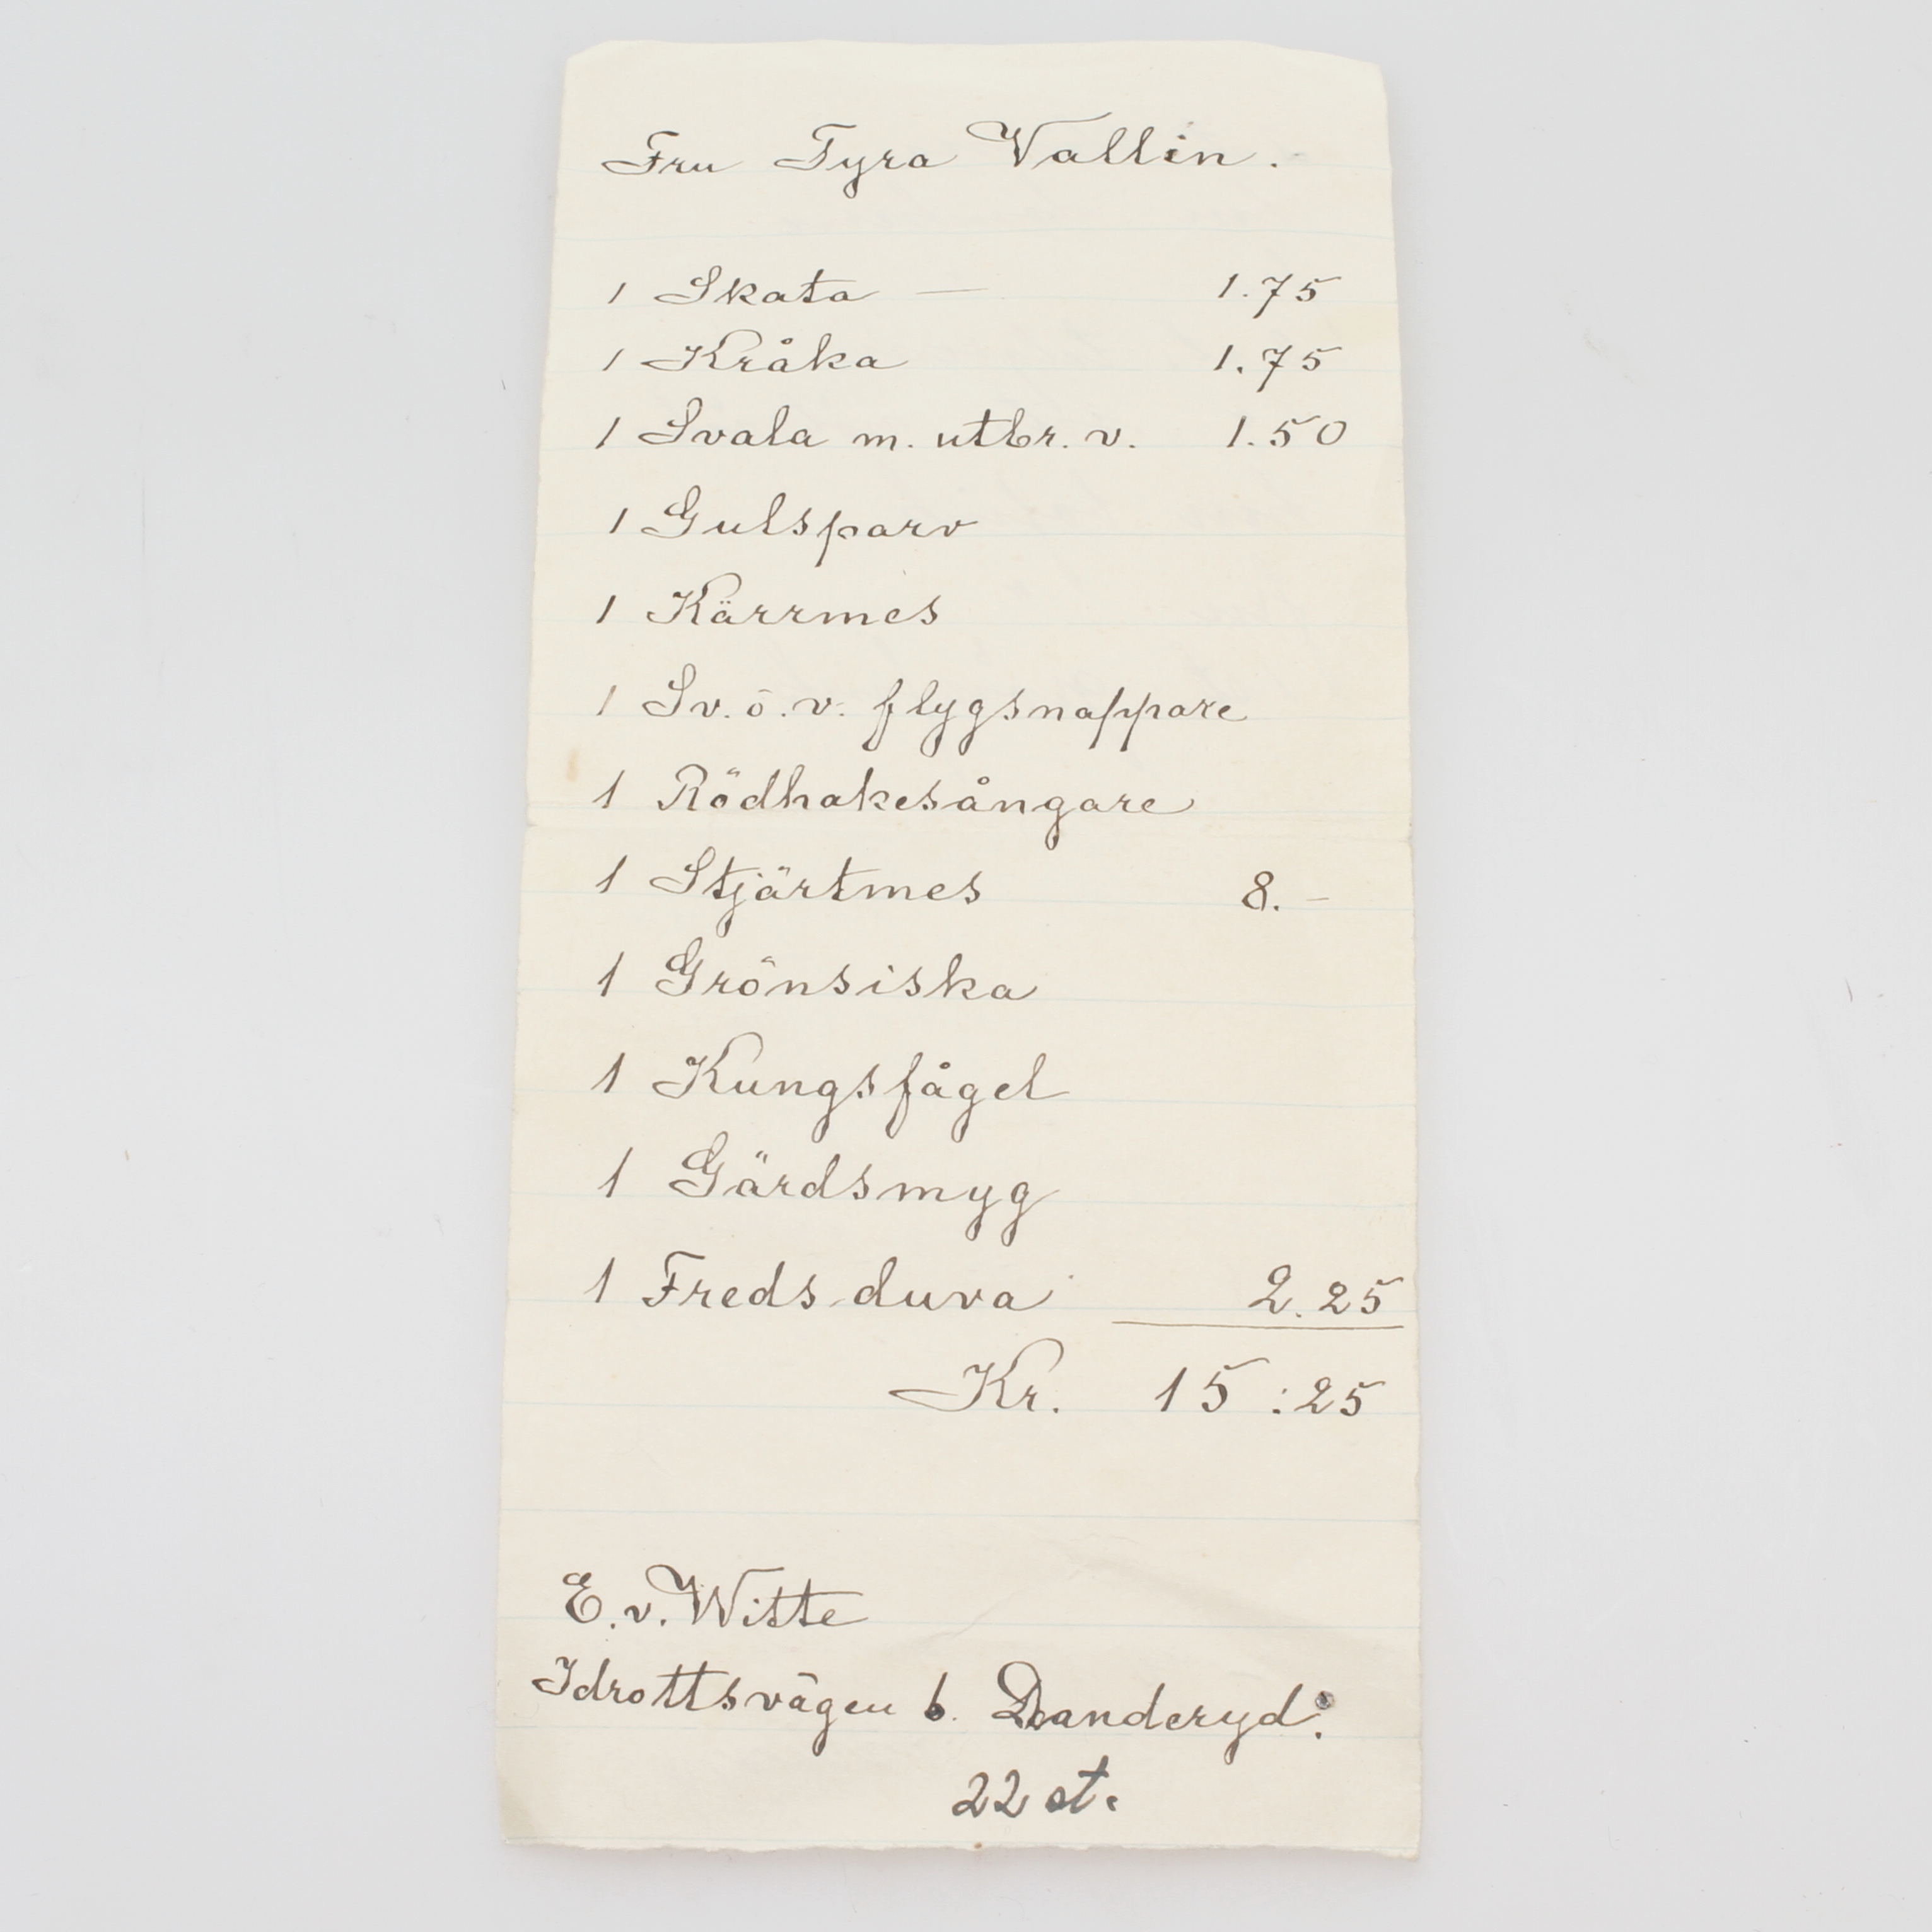 Fru Tyra Vallin.
1 Skata — 1.75
1 Kråka 1.75
1 Svala m. utbr. v. 1.50
1 Gulsparv
1 Kärrmes
1 Sv. o. v. flygsnappare
1 Rödhakesångare
1 Stjärtmes 8.–
1 Grönsiska
1 Kungsfågel
1 Gärdsmyg
1 Freds duva 2.25
Kr. 15:25
E. v. Witte
Idrottsvägen 6. Danderyd.
22 st.